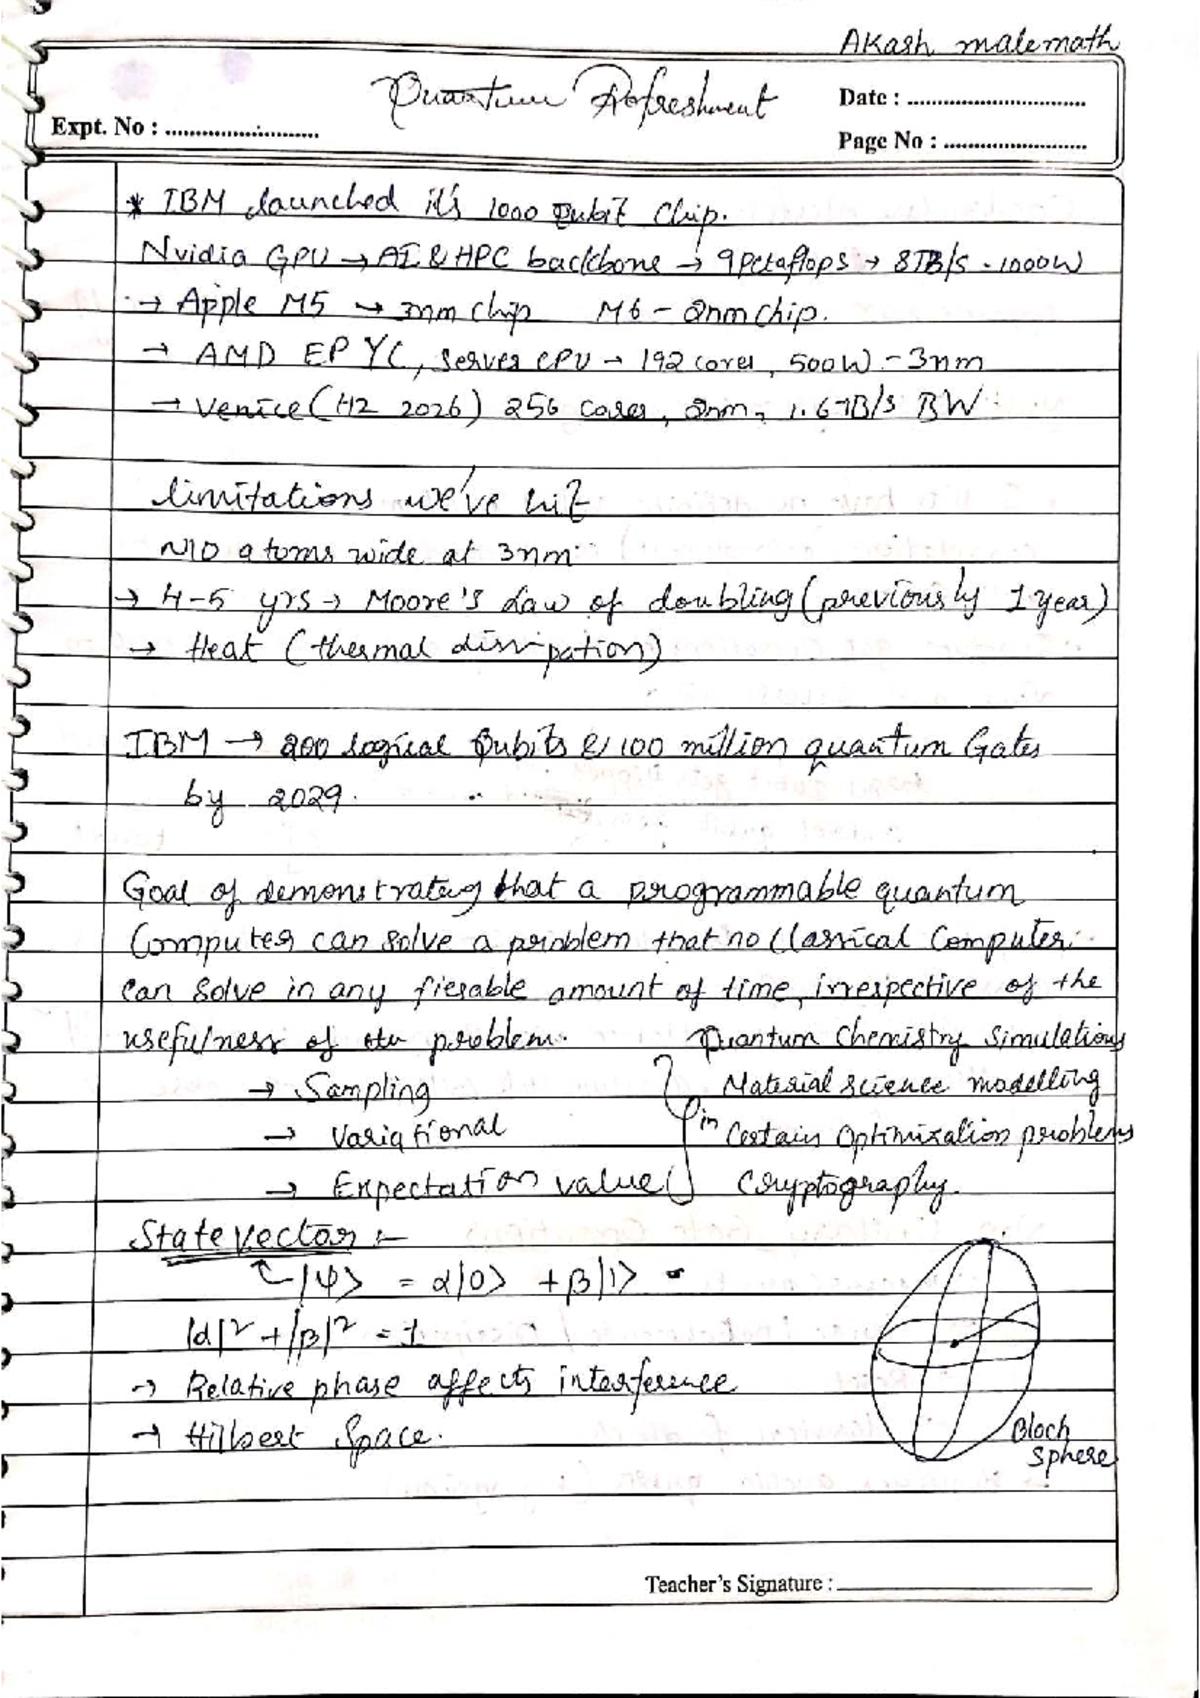 Akash malemath
Quantum Refreshment
Date : ..............................
Expt. No : ..........................
Page No : ........................
* IBM launched it's 1000 Qubit Chip.
Nvidia GPU → AI & HPC backbone → 9Petaflops → 8TB/s - 1000W
→ Apple M5 → 3nm chip M6 - 2nm chip.
→ AMD EPYC, Server CPU → 192 cores, 500W - 3nm
→ Venice (H2 2026) 256 cores, 2nm, 1.6TB/s BW
limitations we've hit
~10 atoms wide at 3nm
→ 4-5 yrs → Moore's Law of doubling (previously 1 year)
→ Heat (thermal dissipation)
IBM → 200 logical Qubits & 100 million quantum Gates
by 2029.
Goal of demonstrating that a programmable quantum
Computer can solve a problem that no Classical Computer
can solve in any fiesable amount of time, irrespective of the
usefulness of the problem.
→ Sampling
→ Variational
→ Expectation value
in
Quantum Chemistry Simulations
Material science modelling
Certain Optimization problems
Cryptography.
State vector :-
|ψ⟩ = α|0⟩ + β|1⟩
|α|² + |β|² = 1
→ Relative phase affects interference
→ Hilbert Space.
Bloch
Sphere
Teacher's Signature : ______________________